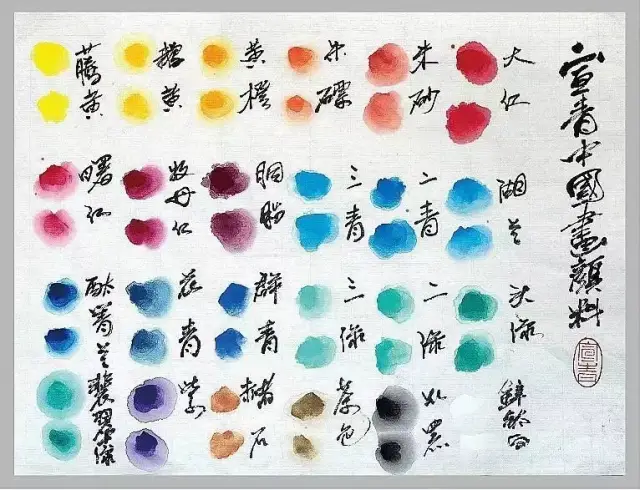 宣青中國畫顏料
大红
朱砂
朱磦
黄橙
黄
藤黄
湖兰
二青
三青
胭脂
牡丹红
曙红
头绿
二绿
三绿
群青
花青
酞菁兰
白
墨
茶色
赭石
紫
翡翠绿
宣青